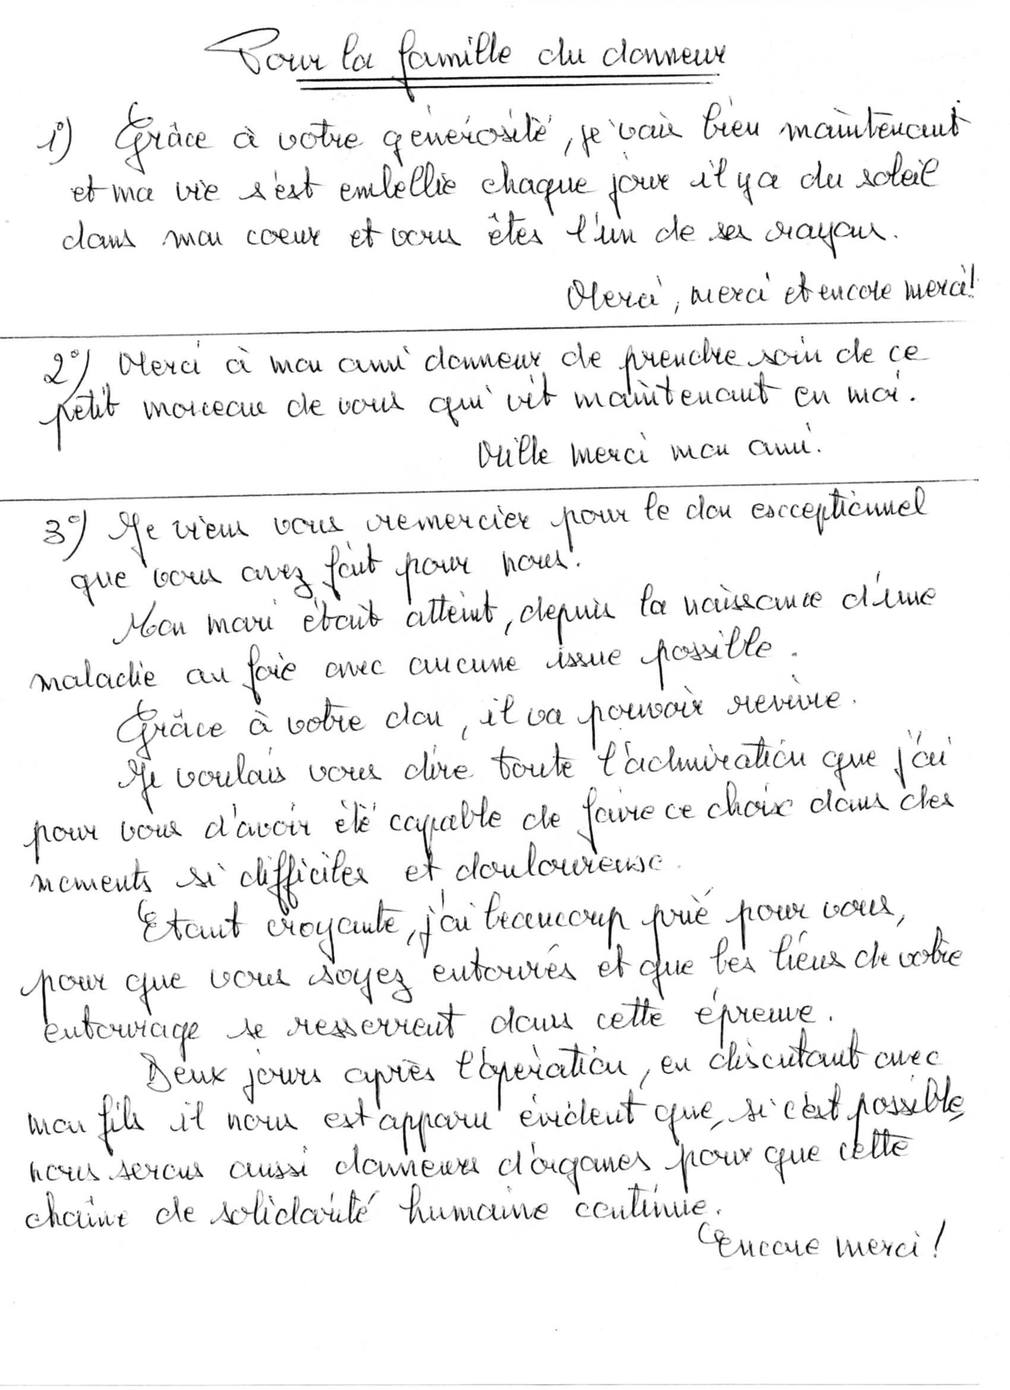 Pour la famille du donneur
1°) Grâce à votre générosité, je vais bien maintenant
et ma vie s'est embellie chaque jour il y a du soleil
dans mon coeur et vous êtes l'un de ses rayons.
Merci, merci et encore merci!
2°) Merci à mon ami donneur de prendre soin de ce
petit morceau de vous qui vit maintenant en moi.
Mille merci mon ami.
3°) Je viens vous remercier pour le don exceptionnel
que vous avez fait pour nous.
Mon mari était atteint, depuis la naissance d'une
maladie au foie avec aucune issue possible.
Grâce à votre don, il va pouvoir revivre.
Je voulais vous dire toute l'admiration que j'ai
pour vous d'avoir été capable de faire ce choix dans des
moments si difficiles et douloureux.
Etant croyante, j'ai beaucoup prié pour vous,
pour que vous soyez entourés et que les liens de votre
entourage se resserrent dans cette épreuve.
Deux jours après l'opération, en discutant avec
mon fils il nous est apparu évident que, si c'est possible,
nous serons aussi donneurs d'organes pour que cette
chaîne de solidarité humaine continue.
Encore merci!